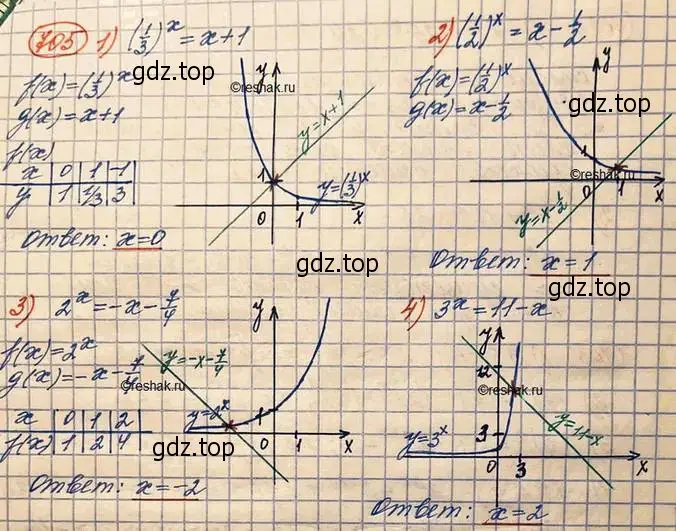 705 1) (1/3)^x = x+1
f(x)=(1/3)^x
g(x)=x+1
f(x)
x | 0 | 1 | -1
y | 1 | 1/3 | 3
y
y=x+1
1
y=(1/3)^x
0 1 x
Ответ: x=0
2) (1/2)^x = x - 1/2
f(x)=(1/2)^x
g(x)=x-1/2
y
1
0 1 x
y=x-1/2
Ответ: x=1
3) 2^x = -x - 7/4
f(x)=2^x
g(x)=-x-7/4
x | 0 | 1 | 2
f(x) | 1 | 2 | 4
y
y=-x-7/4
y=2^x
1
0 1 x
Ответ: x=-2
4) 3^x = 11-x
y
12
3
y=3^x
y=11-x
0 3 x
Ответ: x=2
gdz.top
gdz.top
gdz.top
gdz.top
gdz.top
gdz.top
©reshak.ru
©reshak.ru
©reshak.ru
©reshak.ru